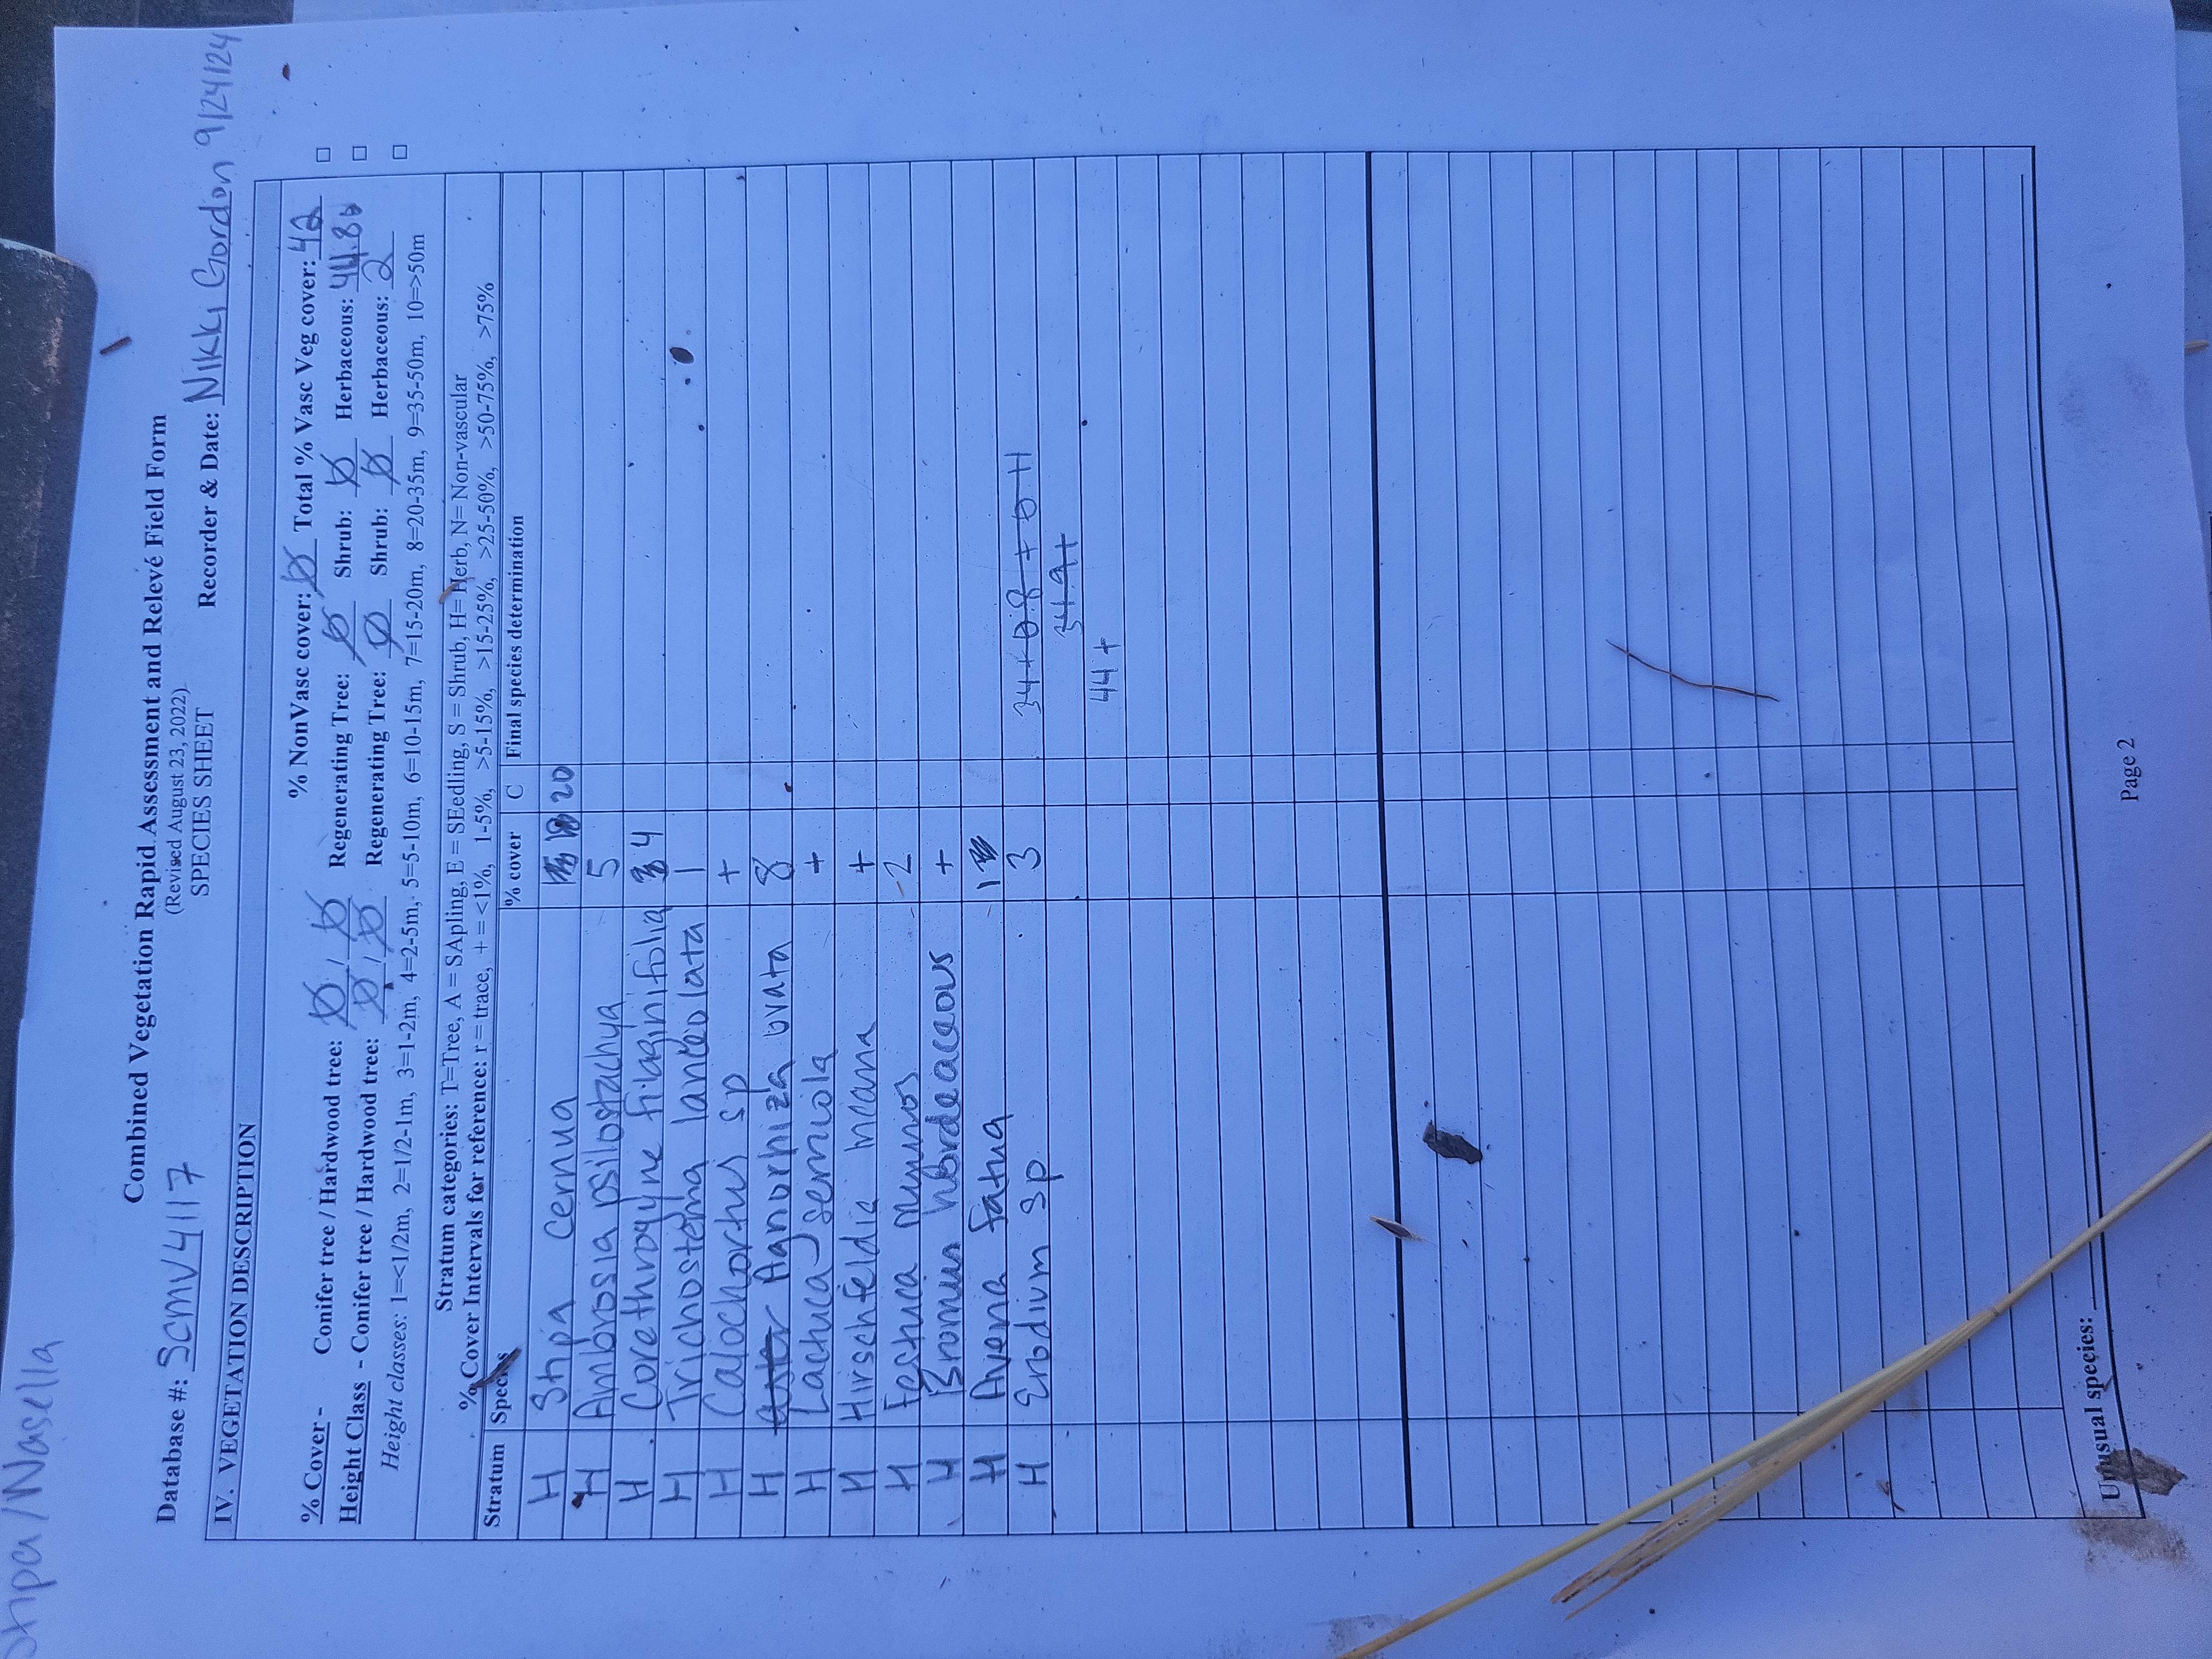 Stipa/Nasella
Combined Vegetation Rapid Assessment and Relevé Field Form
(Revised August 23, 2022)
SPECIES SHEET
Database #: SCMV4117 Recorder & Date: Nikki Gordon 9/24/24
IV. VEGETATION DESCRIPTION
% NonVasc cover: Ø Total % Vasc Veg cover: 42
% Cover - Conifer tree / Hardwood tree: Ø / Ø Regenerating Tree: Ø Shrub: Ø Herbaceous:
Height Class - Conifer tree / Hardwood tree: Ø / Ø Regenerating Tree: Ø Shrub: Ø Herbaceous: 2
Height classes: 1=<1/2m, 2=1/2-1m, 3=1-2m, 4=2-5m, 5=5-10m, 6=10-15m, 7=15-20m, 8=20-35m, 9=35-50m, 10=>50m
Stratum categories: T=Tree, A = SApling, E = SEedling, S = Shrub, H= Herb, N= Non-vascular
% Cover Intervals for reference: r = trace, + = <1%, 1-5%, >5-15%, >15-25%, >25-50%, >50-75%, >75%
Stratum Species % cover C Final species determination
H Stipa cernua 20
H Ambrosia psilostachya 5
H Corethrogyne filaginifolia 4
H Trichostema lanceolata 1
H Calochortus sp +
H Agnorhiza ovata 8
H Lactuca serriola +
H Hirschfeldia incana +
H Festuca myuros 2
H Bromus hordeaceous +
H Avena fatua 1
H Erodium sp 3
34+
34.9+
44+
Unusual species:
Page 2